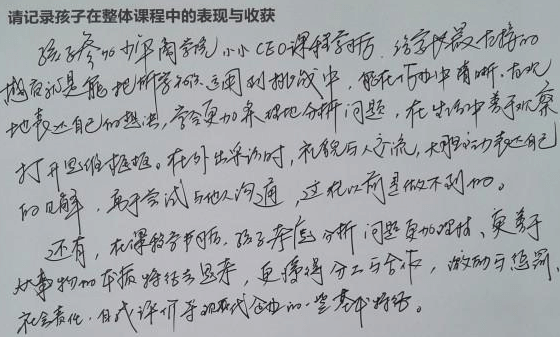 请记录孩子在整体课程中的表现与收获
孩子参加少年商学院小小CEO课程学习后，给家长最直接的
感应就是能把所学知识运用到挑战中，能在活动中清晰、直观
地表达自己的想法，学会更加条理地分析问题，在生活中善于观察
打开思维框框。在外出采访时，礼貌与人交流，大胆主动表达自己
的见解，勇于尝试与他人沟通，这在以前是做不到的。
还有，在课程学习后，孩子考虑分析问题更加理性、更善于
从事物的本质特征去思考，更懂得分工与合作，激励与惩罚、
社会责任、自我评价等现代企业的一些基本特征。